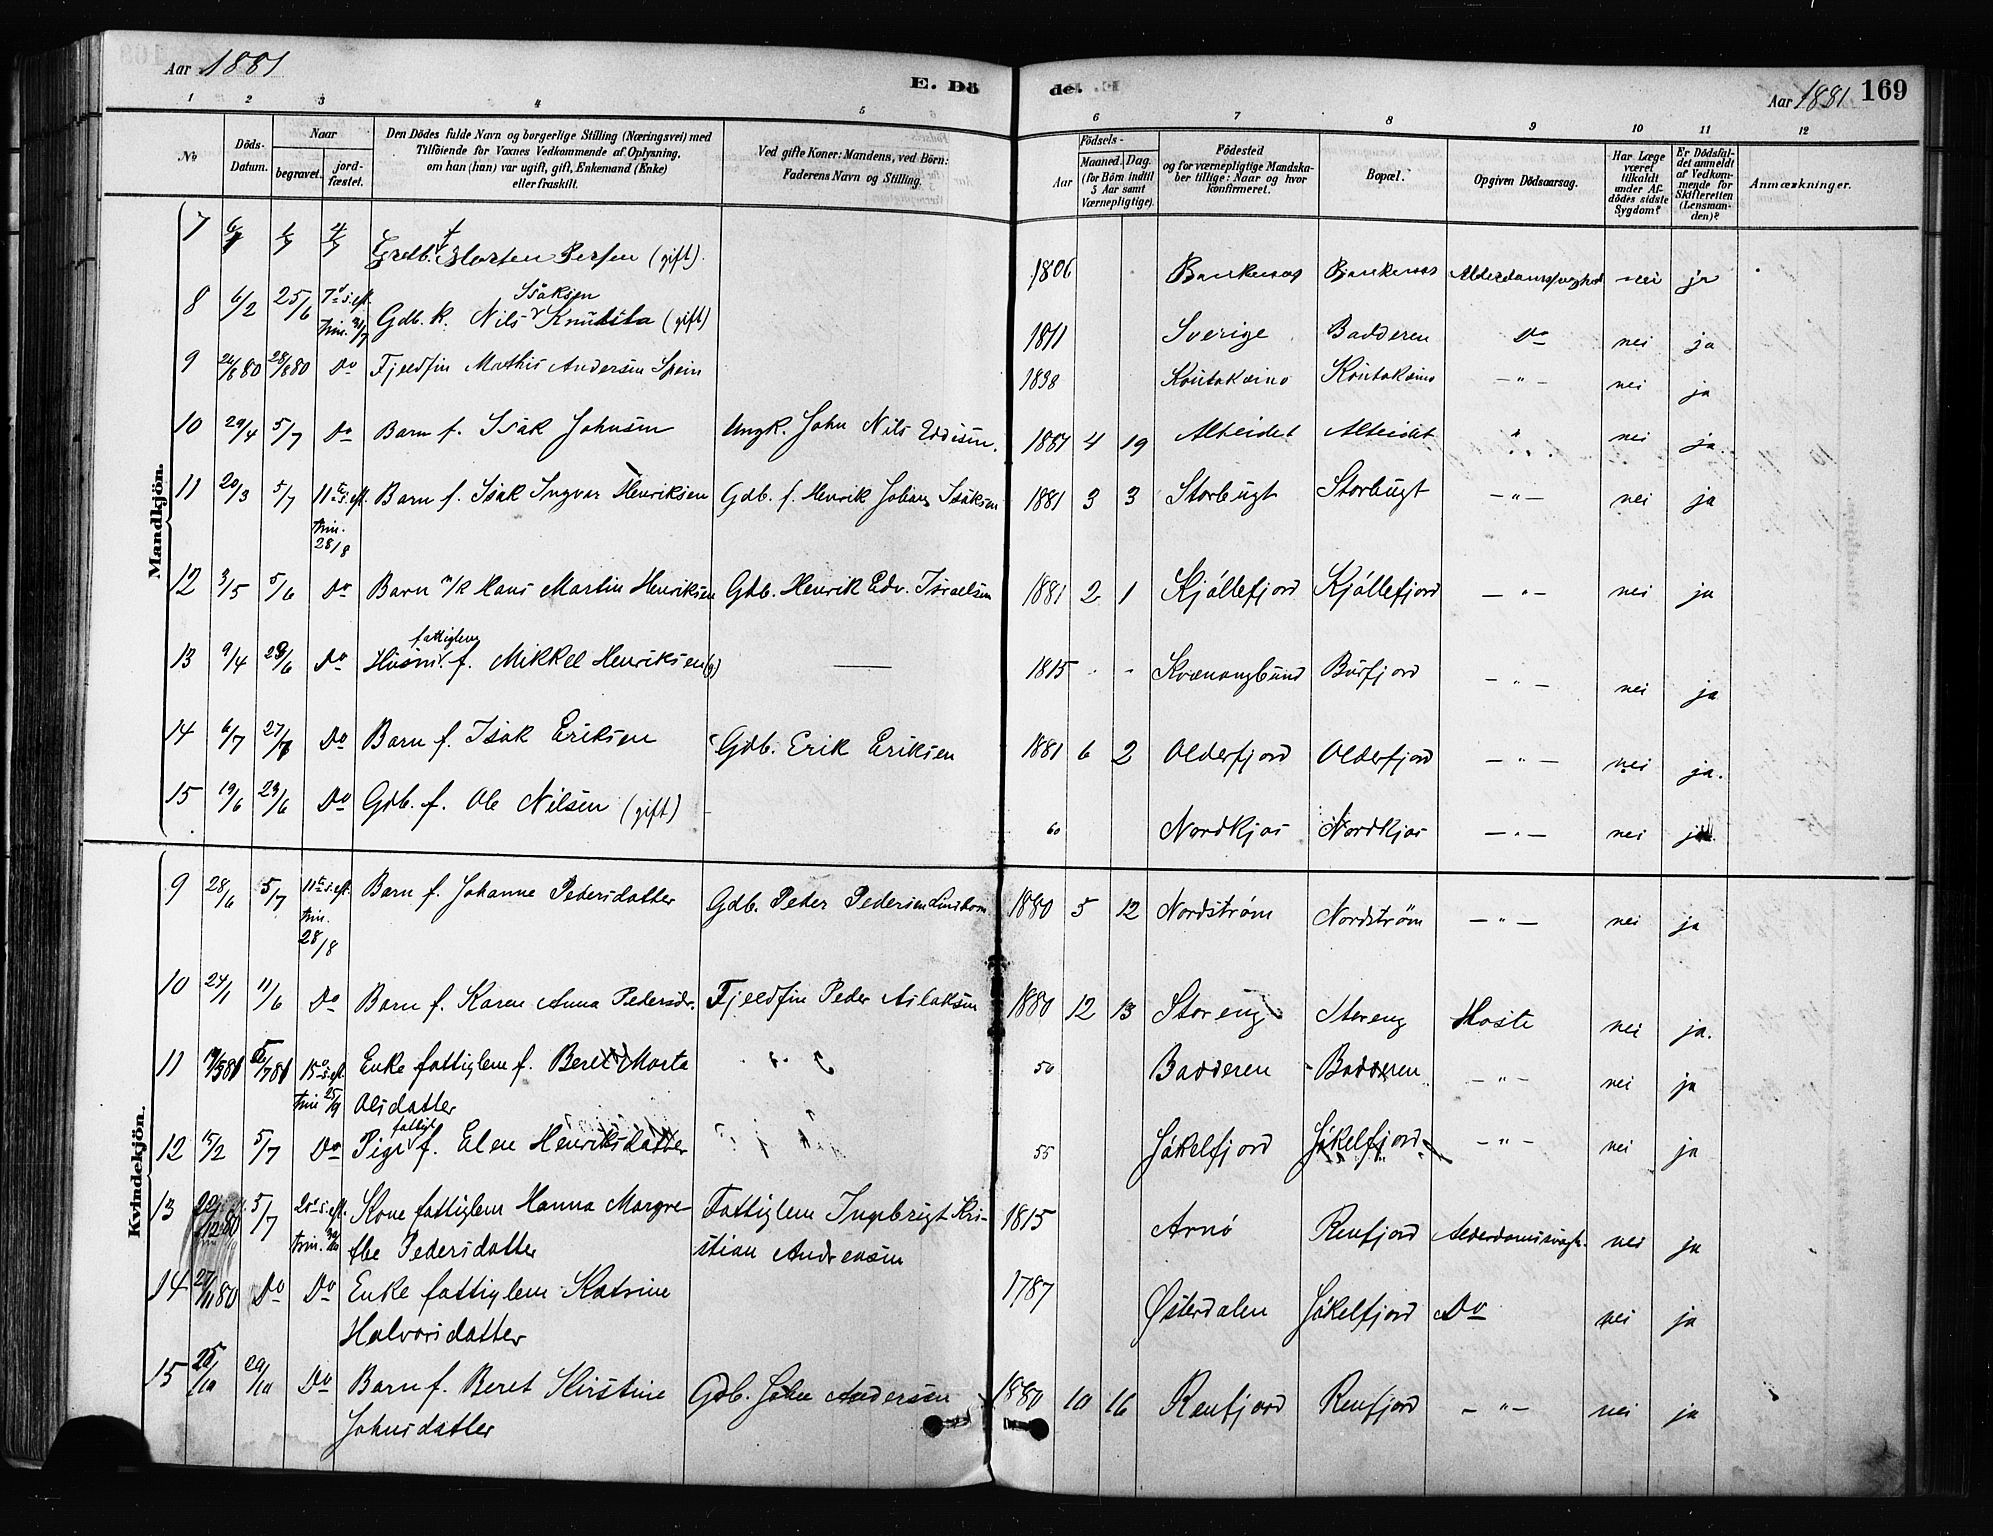 Aar 1881
E. Dö de.
Aar 1881
169
1 2 3 4 5 6 7 8 9 10 11 12
No
Döds-Datum.
Naar
begravet.
jord-fæstet.
Den Dödes fulde Navn og borgerlige Stilling (Næringsvei) med
Tilföiende for Voxnes Vedkommende af Oplysning,
om han (hun) var ugift, gift, Enkemand (Enke)
eller fraskilt.
Ved gifte Koner: Mandens, ved Börn:
Faderens Navn og Stilling.
Födsels-
Aar
Maaned. Dag.
(for Börn indtil
5 Aar samt
Værnepligtige).
Födested
og for værnepligtige Mandska-
ber tillige: Naar og hvor
konfirmeret.
Bopæl.
Opgiven Dödsaarsag.
Har Læge
været
tilkaldt
under Af-
dödes sidste
Sygdom?
Er Dödsfal-
det anmeldt
af Vedkom-
mende for
Skifteretten
(Lensman-
den)?
Anmærkninger.
Mandkjön.
7 Gredb. f Morten Persen (gift) 1806 nei ja
8 6/2 25/6 7de s. eft. Trin. 31/7 Gdb. k. Nils Isaksen Knutsta (gift) 1811 Sverige Badderen Do nei ja
9 24/8 80 28/8 80 Do Fjeldfin Mathis Andersen Spein 1838 Koutokæino Koutokæino - " - nei ja
10 29/4 5/7 Do Barn f. Isak Johnsen Ungk. John Nils Eddisen. 1881 4 19 Alteidet Alteidet " nei ja
11 20/3 5/7 11te s. eft. Trin. 28/8 Barn f. Isak Ingvar Henriksen Gdb. f. Henrik Johan Isaksen 1881 3 3 Storbugt Storbugt - " - nei ja
12 3/5 5/6 Do Barn n/k Hans Martin Henriksen Gdb. Henrik Edv. Israelsen 1881 2 1 Kjóllefjord Kjóllefjord - " - nei ja
13 9/4 29/6 Do Husm. fattiglem f. Mikkel Henriksen (g) — 1815 - - Kvænangbund Burfjord - " - nei ja
14 6/7 27/7 Do Barn f. Isak Eriksen Gdb. Erik Eriksen 1881 6 2 Olderfjord Olderfjord - " - nei ja.
15 19/6 23/6 Do Gdb. f. Ole Nilsen (gift) - 60 Nordkjos Nordkjos - " - nei ja.
Kvindekjön.
9 28/6 5/7 11te s. eft. Trin. 28/8 Barn f. Johanne Pedersdatter Gdb. Peder Pedersen 1880 5 12 Nordstrøm Nordstrøm - " - nei ja
10 24/1 11/6 Do Barn f. Karen Anna Pedersdr. Fjeldfin Peder Aslaksen 1880 12 13 Storeng Storeng Hoste nei ja.
11 15de s. eft. Trin 25/9 Enke fattiglem f. Beret Marta
Olsdatter 50 Badderen Badderen - " - nei ja
12 15/2 5/7 Do Pige fattigl. f. Elen Henriksdatter 55 Jökelfjord Jökelfjord - " - nei ja
13 5/7 20de s. eft. Trin. Kone fattiglem Hanna Margre-
the Pedersdatter Fattiglem Ingebrigt Kri-
stian Andreasen 1815 Arnö Renfjord Alderdomssvagh. nei ja
14 27/11 80 Do Do Enke fattiglem Katrine
Halvorsdatter 1787 Østerdalen Jökelfjord Do nei ja
15 25/10 29/10 Do Barn f. Beret Kirstine
Johnsdatter Gdb. John Andersen 1880 10 16 Renfjord Renfjord - " - nei ja